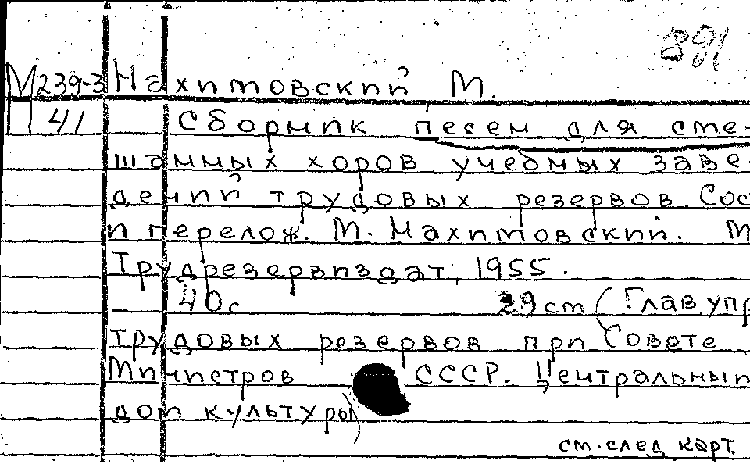 891
М239-3 Нахимовский М.
П 41 Сборник песен для сме-
шанных хоров учебных заве-
дений трудовых резервов Сос
и перелож. М. Нахимовский. М
Трудрезервиздат, 1955.
40с 29cm (Глав упр
трудовых резервов при Совете
Министров СССР. Центральный
дом культуры)
см. след карт